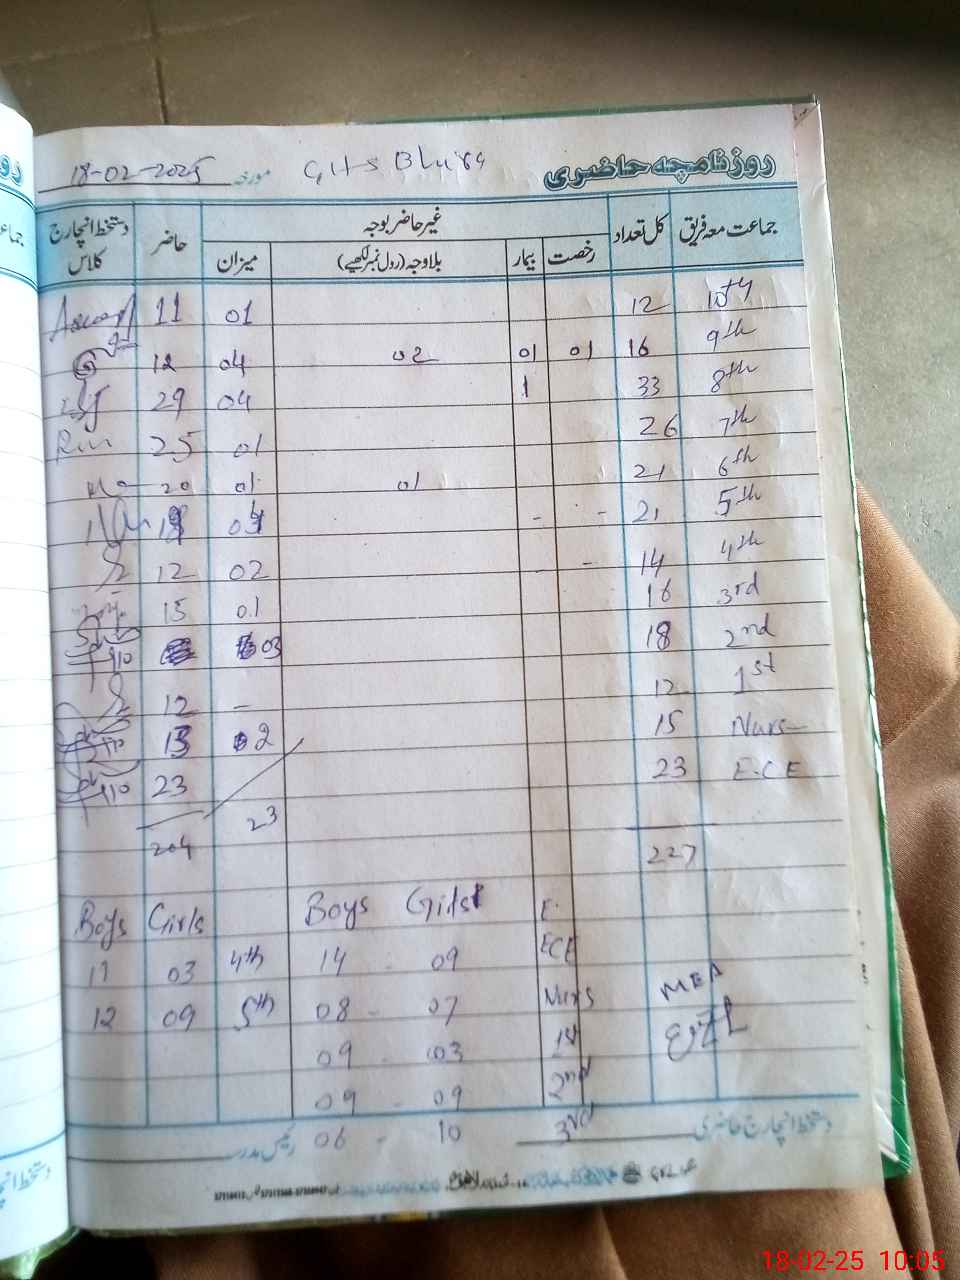 روزنامچہ حاضری GHS Bhura مورخہ 18-02-2025
جماعت معہ فریق کل تعداد غیر حاضر بوجہ حاضر دستخط انچارج کلاس
رخصت بیمار بلاوجہ (رول نمبر لکھیے) میزان
10th 12 01 11
9th 16 01 01 02 04 12
8th 33 1 04 29
7th 26 01 25
6th 21 01 01 20
5th 21 - -
4th 14 - 02 12
3rd 16 01 15
2nd 18 03
1st 12 - 12
Nurs 15 2 13
E.C.E 23 23
227 23 204
Boys Girls Boys Girls E.
11 03 4th 14 - 09 ECE
12 09 5th 08 - 07 Nurs
09 - 03 1st
09 - 09 2nd
06 - 10 3rd
MEA
دستخط انچارج حاضری رئیس مدرسہ
18-02-25 10:05